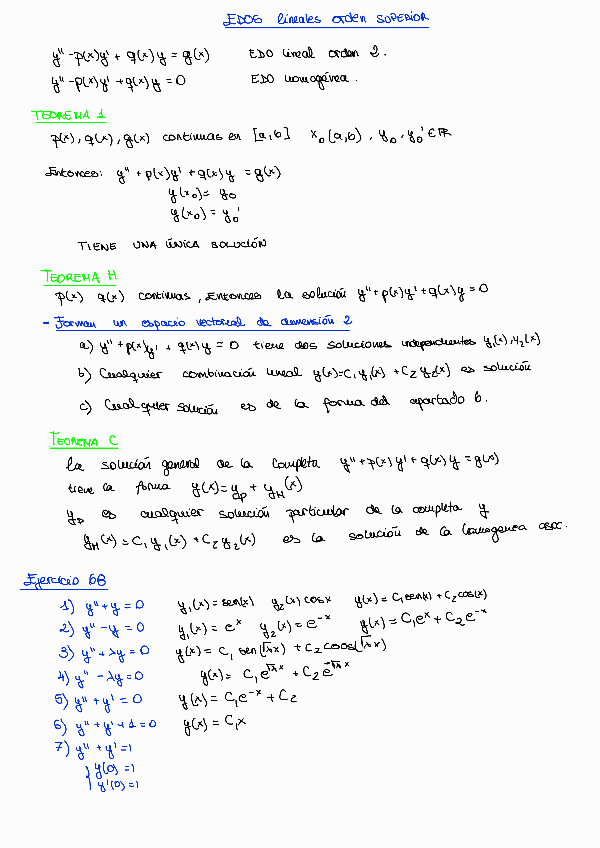 EDOS lineales orden SUPERIOR
y'' - p(x)y' + q(x)y = g(x) EDO lineal orden 2.
y'' - p(x)y' + q(x)y = 0 EDO homogénea.
TEOREMA 1
p(x), q(x), g(x) continuas en [a,b] x₀ (a,b), y₀, y₀' ∈ ℝ
Entonces: y'' + p(x)y' + q(x)y = g(x)
y(x₀) = y₀
y(x₀) = y₀'
TIENE UNA ÚNICA SOLUCIÓN
TEOREMA H
p(x) q(x) continuas, Entonces la solución y'' + p(x)y' + q(x)y = 0
- Forman un espacio vectorial de dimensión 2
a) y'' + p(x)y' + q(x)y = 0 tiene dos soluciones independientes y₁(x), y₂(x)
b) Cualquier combinación lineal y(x) = C₁y₁(x) + C₂y₂(x) es solución
c) Cualquier solución es de la forma del apartado b.
TEOREMA C
La solución general de la completa y'' + p(x)y' + q(x)y = g(x)
tiene la forma y(x) = yp + yH(x)
yp es cualquier solución particular de la completa y
yH(x) = C₁y₁(x) + C₂y₂(x) es la solución de la homogenea asoc.
Ejercicio 68
1) y'' + y = 0 y₁(x) = sen(x) y₂(x) cosx y(x) = C₁sen(x) + C₂cos(x)
2) y'' - y = 0 y₁(x) = eˣ y₂(x) = e⁻ˣ y(x) = C₁eˣ + C₂e⁻ˣ
3) y'' + λy = 0 y(x) = C₁ sen(√λ x) + C₂ coos(√λ x)
4) y'' - λy = 0 y(x) = C₁e^(√λ x) + C₂e^(-√λ x)
5) y'' + y' = 0 y(x) = C₁e⁻ˣ + C₂
6) y'' + y' + 1 = 0 y(x) = C₁x
7) y'' + y' = 1
y(0) = 1
y'(0) = 1